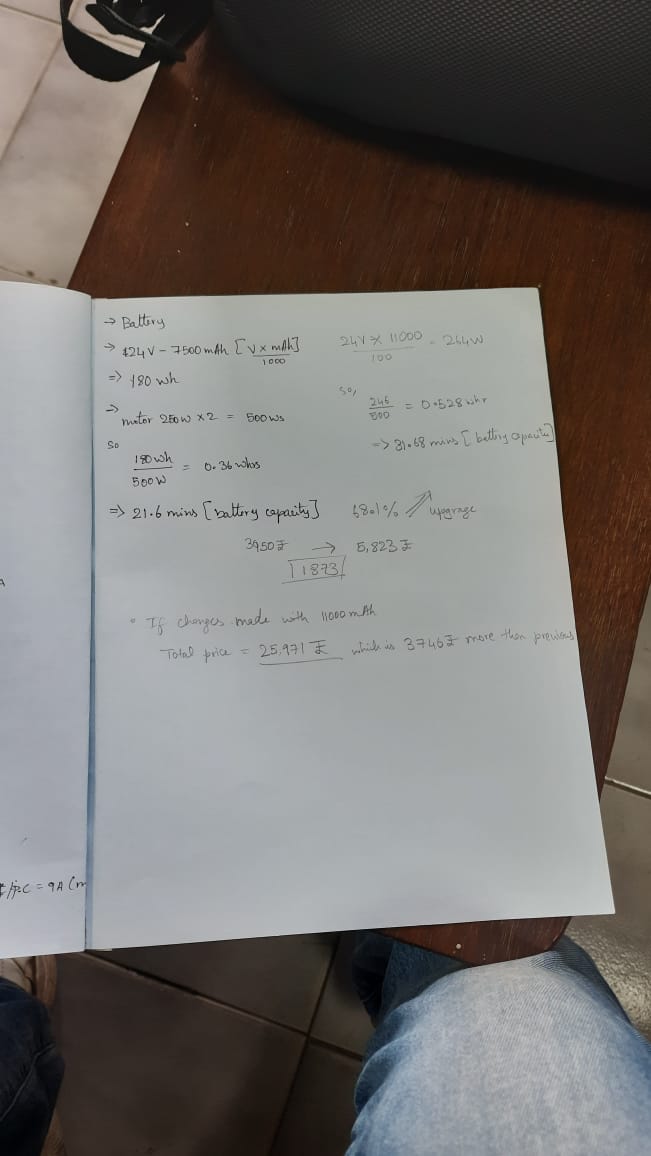 → Battery
→ 24V – 7500 mAh [V x mAh]
1000
=> 180 wh
→
motor 250W x 2 = 500 Ws
So
180 wh
500 W
= 0.36 whrs
=> 21.6 mins [battery capacity]
24V x 11000
100
= 264W
So,
246
500
= 0.528 whr
=> 31.68 mins [battery capacity]
upgrage
3950 ₹ → 5,823 ₹
1873
• If changes made with 11000 mAh
Total price = 25,971 ₹ which is 3746 ₹ more then previous
= 9A